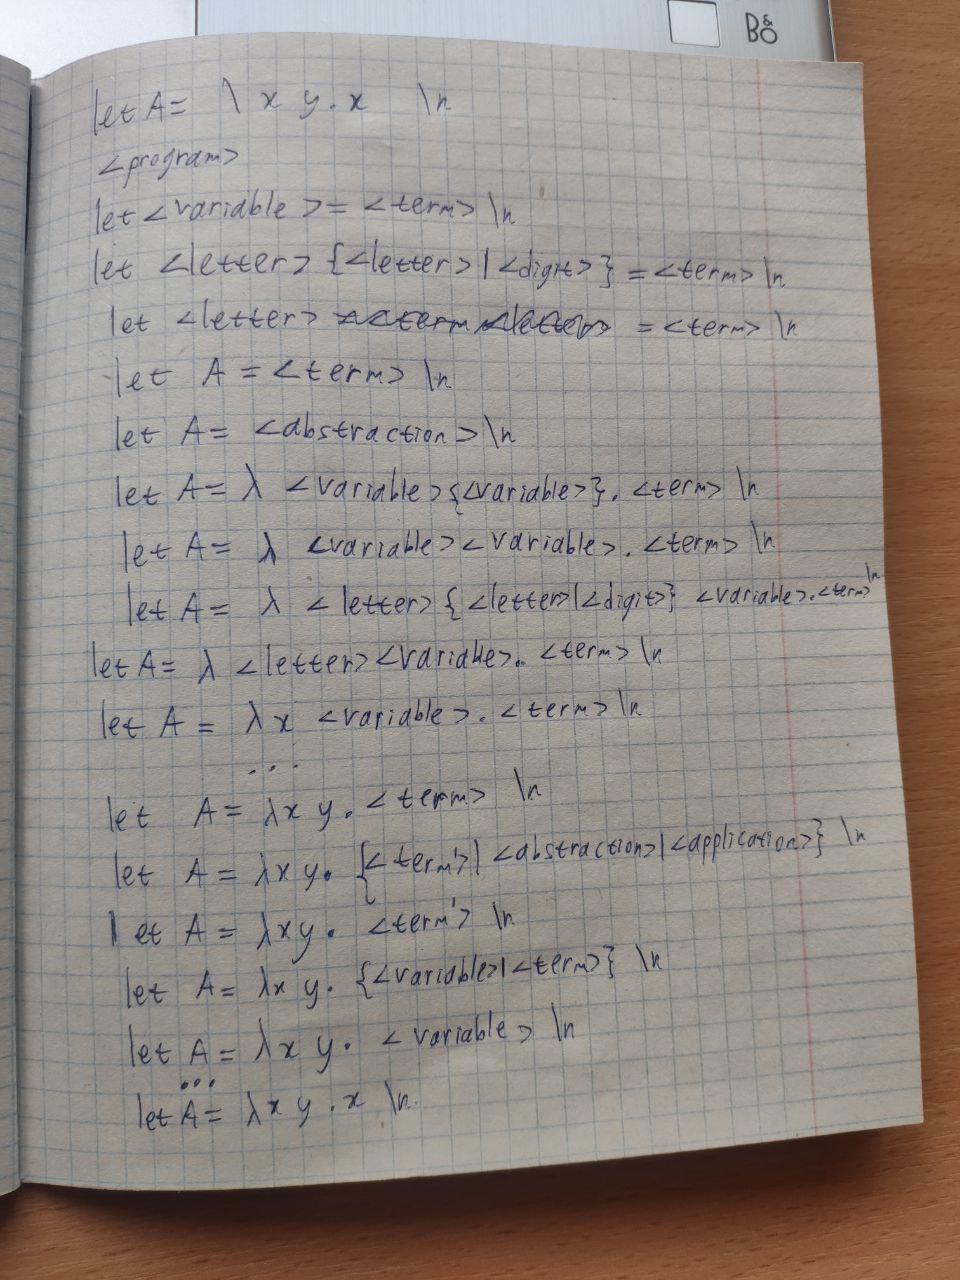 B&O
let A = \ x y . x \n
<program>
let <variable> = <term> \n
let <letter> {<letter> | <digit>} = <term> \n
let <letter> = <term> \n
let A = <term> \n
let A = <abstraction> \n
let A = λ <variable> {<variable>} . <term> \n
let A = λ <variable> <variable> . <term> \n
let A = λ <letter> {<letter>|<digit>} <variable> . <term> \n
let A = λ <letter> <variable> . <term> \n
let A = λ x <variable> . <term> \n
...
let A = λ x y . <term> \n
let A = λ x y . {<term'> | <abstraction> | <application>} \n
let A = λ x y . <term'> \n
let A = λ x y . {<variable> | <term>} \n
let A = λ x y . <variable> \n
...
let A = λ x y . x \n